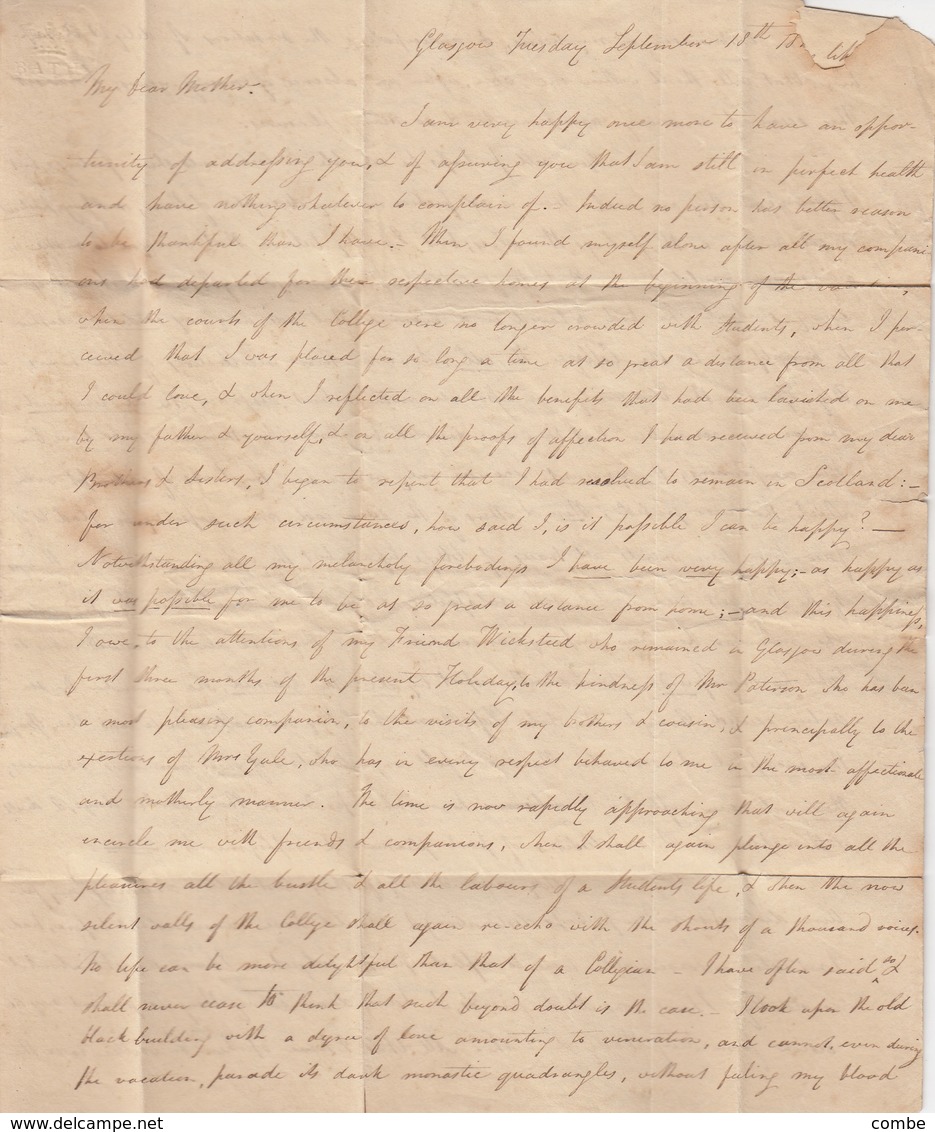 Glasgow Tuesday September 18th
My dear Mother.
I am very happy once more to have an oppor-
tunity of addressing you, & of assuring you that I am still in perfect health
and have nothing whatever to complain of. - Indeed no person has better reason
to be thankful than I have. - When I found myself alone after all my compani-
ons had departed for their respective homes at the beginning of the vacation,
when the courts of the College were no longer crowded with Students, when I per-
ceived that I was placed for so long a time at so great a distance from all that
I could love, & when I reflected on all the benefits that had been lavished on me
by my father & yourself, & on all the proofs of affection I had received from my dear
Brothers & Sisters, I began to repent that I had resolved to remain in Scotland: -
for under such circumstances, how said I, is it possible I can be happy? —
Notwithstanding all my melancholy forebodings I have been very happy; - as happy as
it was possible for me to be at so great a distance from home; - and this happiness,
I owe, to the attentions of my Friend Wicksteed who remained in Glasgow during the
first three months of the present Holiday, to the kindness of Mr Paterson who has been
a most pleasing companion, to the visits of my brothers & cousin, & principally to the
exertions of Mrs Yule, who has in every respect behaved to me in the most affectionate
and motherly manner. The time is now rapidly approaching that will again
encircle me with friends & companions, when I shall again plunge into all the
pleasures all the bustle & all the labours of a Students life, & when the now
silent walls of the College shall again re-echo with the shouts of a thousand voices.
No life can be more delightful than that of a Collegian - I have often said so &
shall never cease to think that such beyond doubt is the case. - I look upon the old
black building with a degree of love amounting to veneration, and cannot, even during
the vacation, parade its dark monastic quadrangles, without feeling my blood
combe
www.delcampe.net